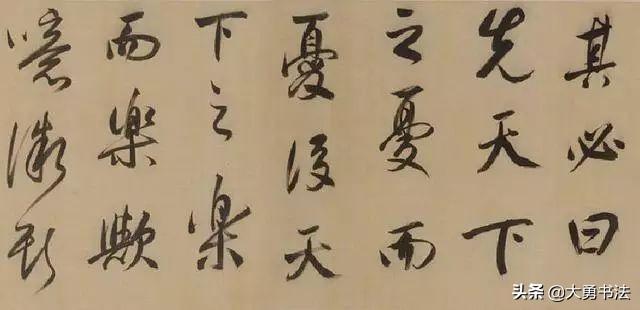 其必曰
先天下
之憂而
憂後天
下之樂
而樂歟
噫微斯
头条 @大勇书法